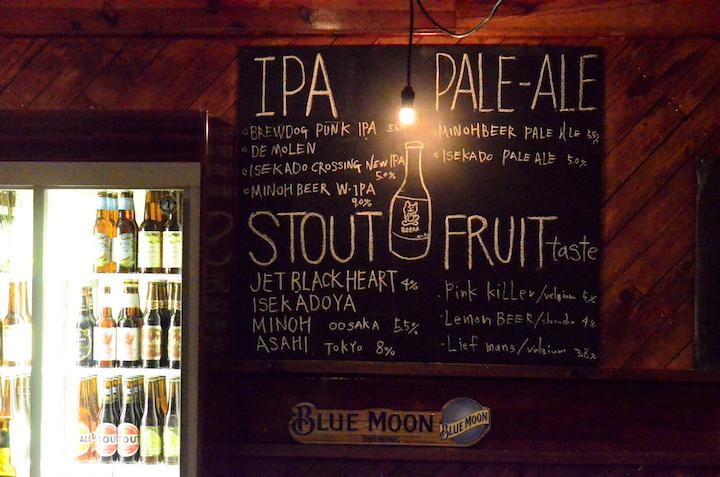 IPA
BREWDOG PUNK IPA 5.6%
DE MOLEN
ISEKADO CROSSING NEW IPA
5.0%
MINOH BEER W-IPA
9.0%
PALE-ALE
MINOH BEER PALE ALE 5.5%
ISEKADO PALE ALE 5.0%
STOUT
JET BLACK HEART 4%
ISEKADOYA
MINOH OOSAKA 5.5%
ASAHI TOKYO 8%
FRUIT taste
Pink killer/velgium 5%
Lemon BEER/ 4%
Lief mans/velgium 3.8%
BLUE MOON
BREWING
BLUE MOON
ALE
STOUT
STOUT